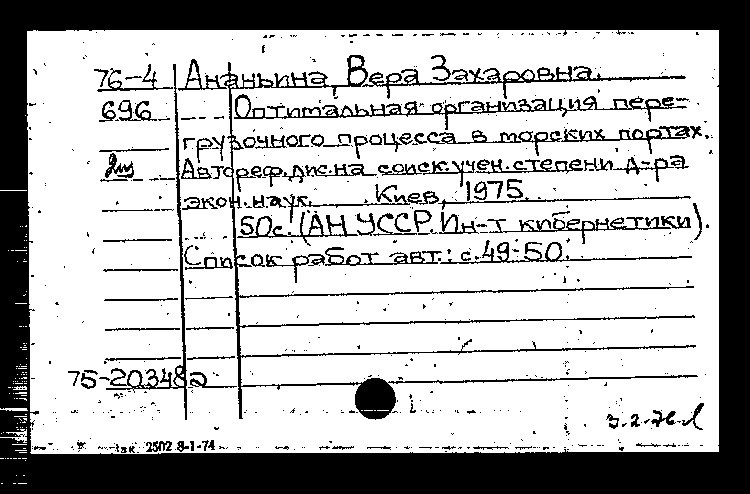 76-4 Ананьина, Вера Захаровна.
696 Оптимальная организация пере-
грузочного процесса в морских портах.
Автореф. дис. на соиск. учен. степени д-ра
экон. наук. Киев, 1975.
50с. (АН УССР. Ин-т кибернетики).
Список работ авт.: с. 49-50.
75-20348а
3.2.76
Зак. 2502 8-1-74